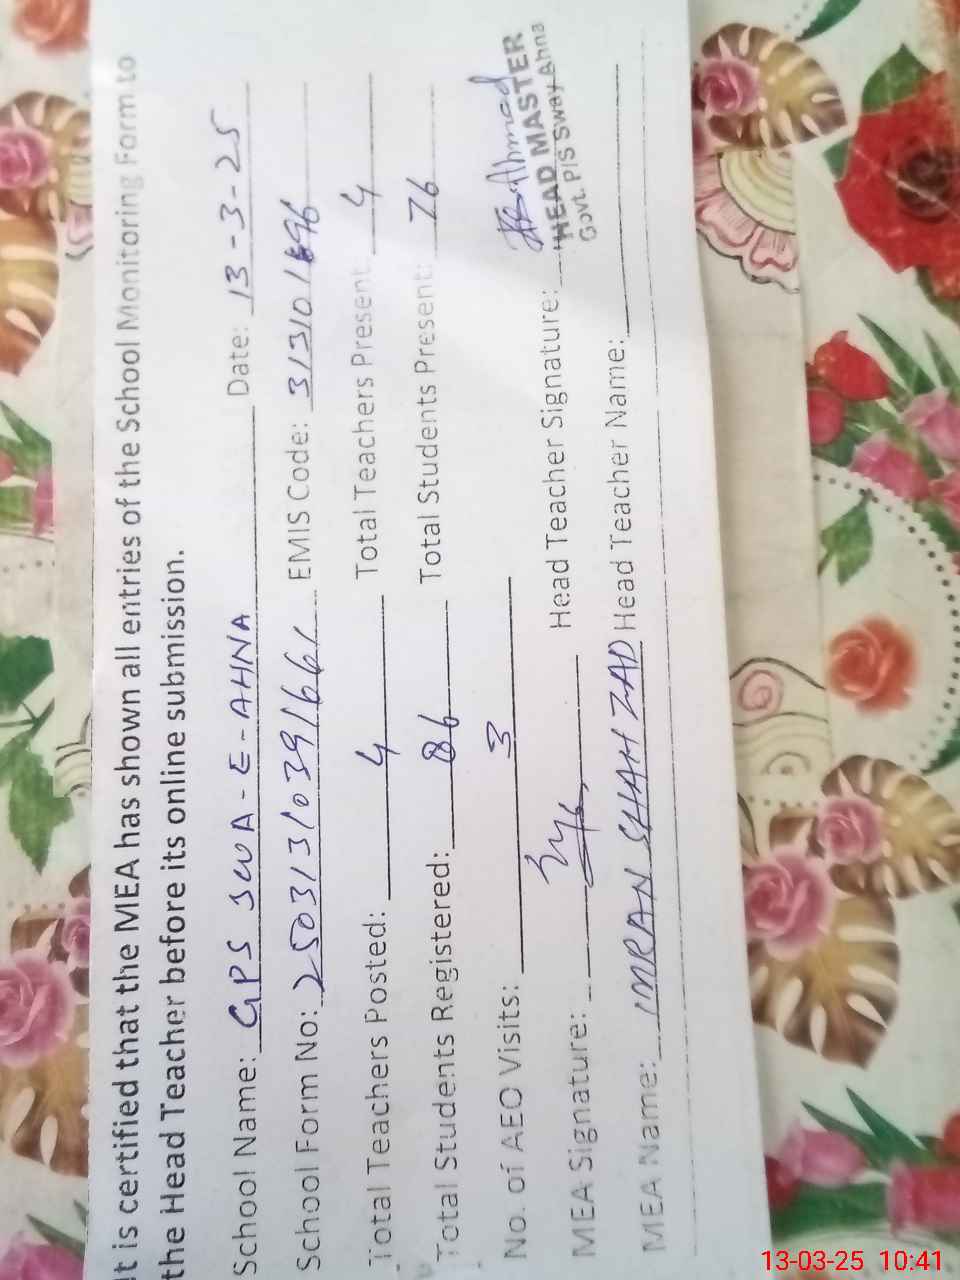 It is certified that the MEA has shown all entries of the School Monitoring Form to
the Head Teacher before its online submission.
School Name: GPS SWA-E-AHNA Date: 13-3-25
School Form No: 25031310391661 EMIS Code: 31310
Total Teachers Posted: 4 Total Teachers Present: 4
Total Students Registered: 86 Total Students Present: 76
No. of AEO Visits: 3
MEA Signature: Head Teacher Signature: Ahmad
HEAD MASTER
Govt. P/S Sway Ahna
MEA Name: IMRAN SHAHZAD Head Teacher Name:
13-03-25 10:41